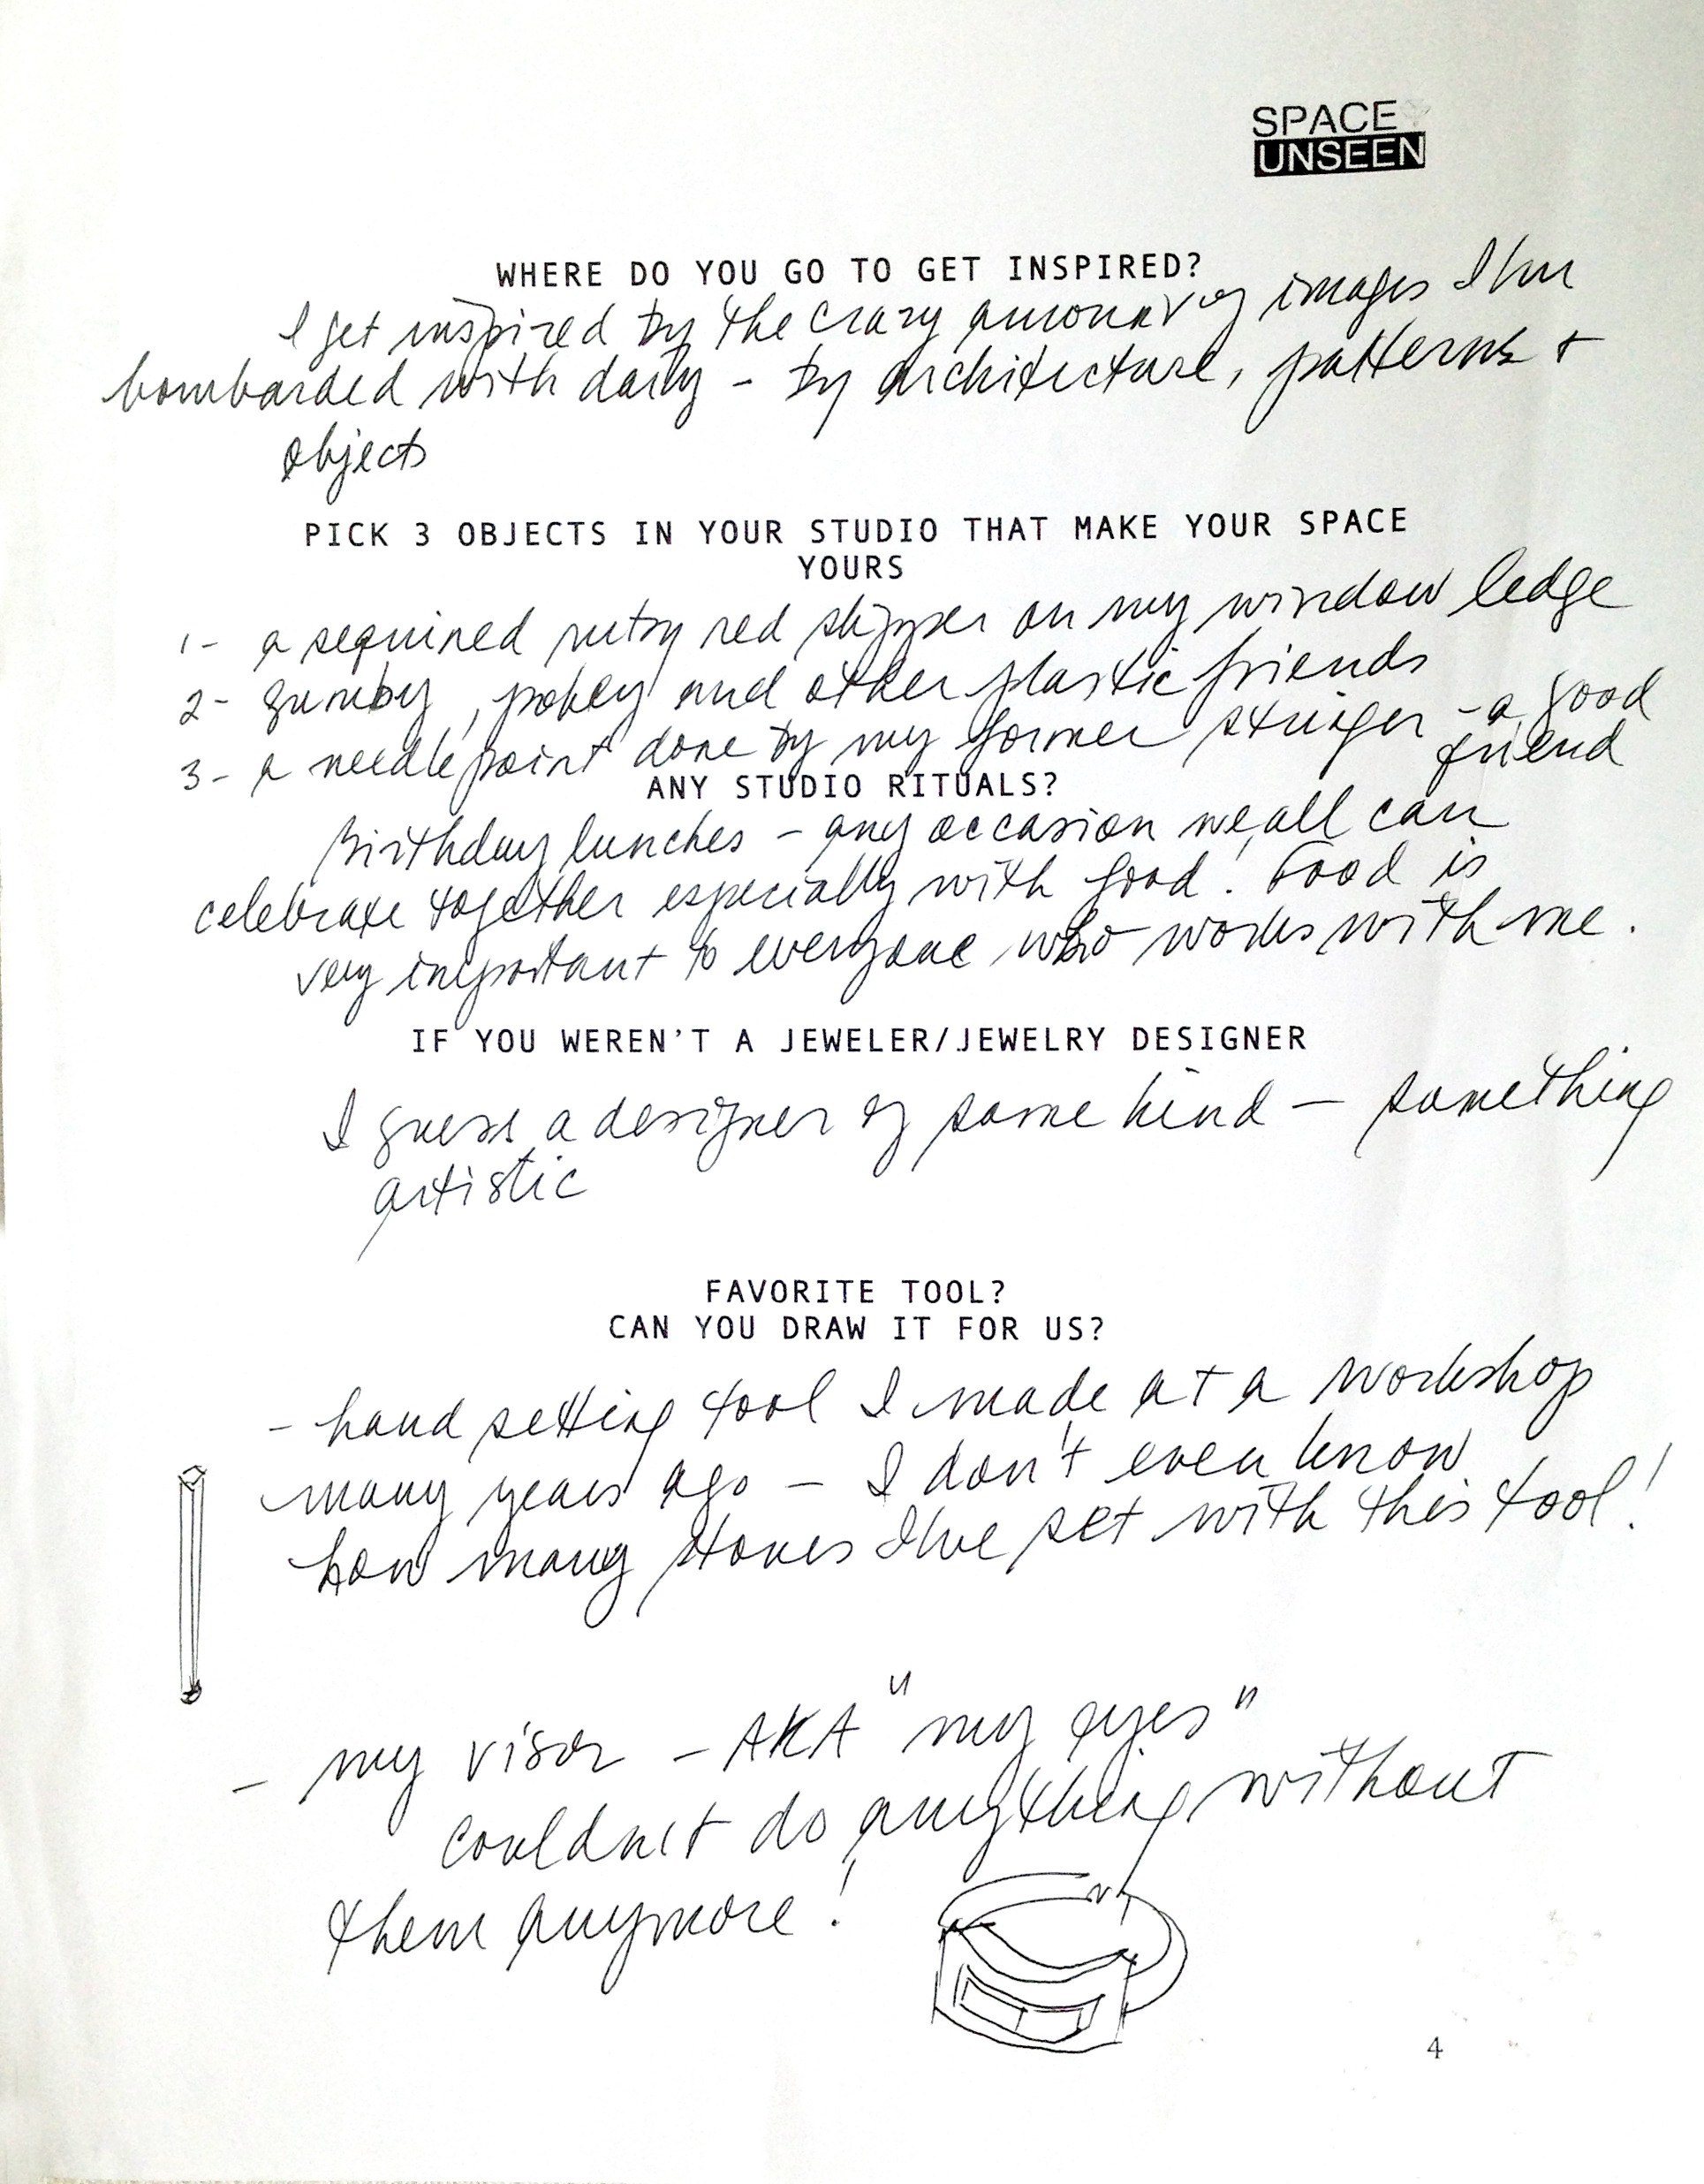 SPACE
UNSEEN
WHERE DO YOU GO TO GET INSPIRED?
I get inspired by the crazy amount of images I am
bombarded with daily - by architecture, patterns +
objects
PICK 3 OBJECTS IN YOUR STUDIO THAT MAKE YOUR SPACE
YOURS
1- a sequined ruby red slipper on my window ledge
2- gumby, pokey and other plastic friends
3- a needlepoint done by my former stringer - a good
friend
ANY STUDIO RITUALS?
Birthday lunches - any occasion we, all can
celebrate together especially with food! Food is
very important to everyone who works with me.
IF YOU WEREN'T A JEWELER/JEWELRY DESIGNER
I guess a designer of some kind — something
artistic
FAVORITE TOOL?
CAN YOU DRAW IT FOR US?
- hand setting tool I made at a workshop
many years ago - I don't even know
how many stones I've set with this tool!
- my visor - AKA "my eyes"
couldn't do anything without
them anymore!
4